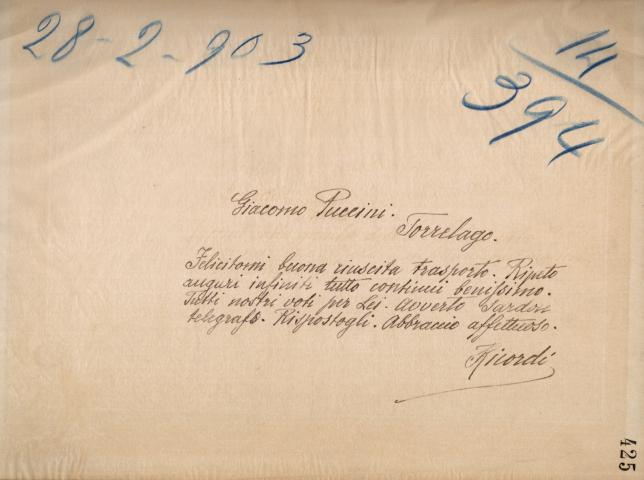 28-2-903
14/394
Giacomo Puccini.
Torrelago.
Felicitomi buona riuscita trasporto. Ripeto
auguri infiniti tutto continui benissimo.
Tutti nostri voti per Lei. Avverto Sardou
telegrafò. Rispostogli. Abbraccio affettuoso.
Ricordi
425